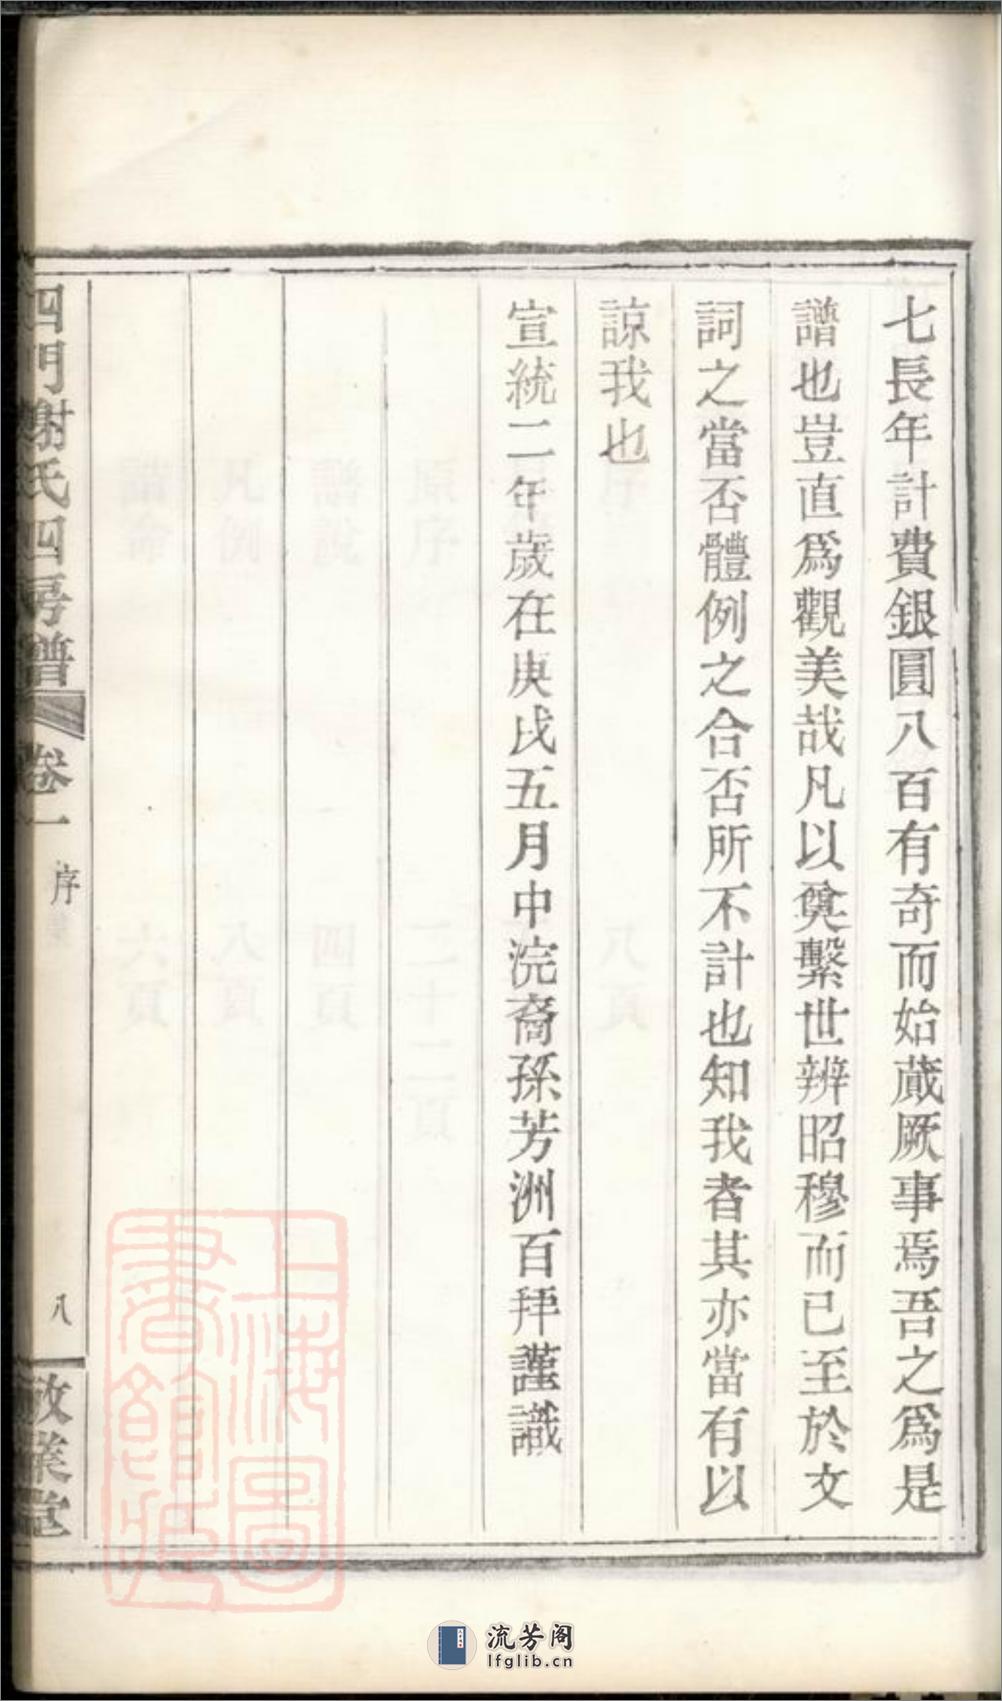 七長年計費銀圓八百有奇而始蕆厥事焉吾之爲是
譜也豈直爲觀美哉凡以奠繫世辨昭穆而已至於文
詞之當否體例之合否所不計也知我者其亦當有以
諒我也
宣統二年歲在庚戌五月中浣裔孫芳洲百拜謹識
四門謝氏四房譜
卷一
序
八
敦業堂
上海圖書館藏
流芳阁
lfglib.cn